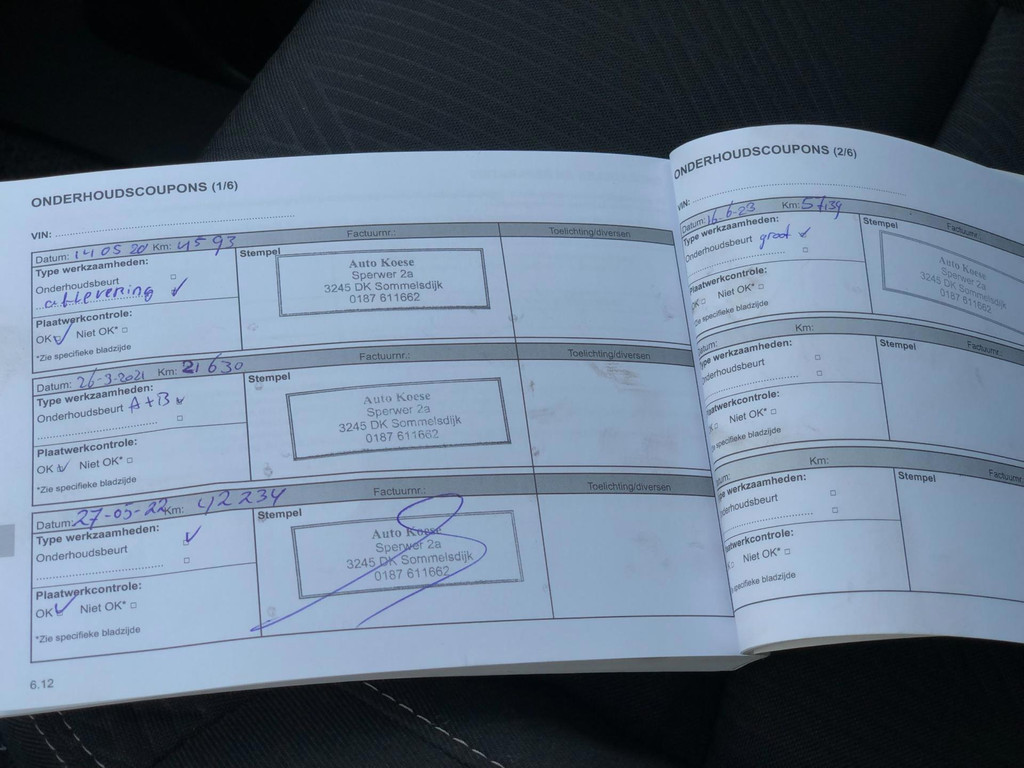 ONDERHOUDSCOUPONS (1/6)
VIN:
Datum: 14 05 20 Km: 4593 Factuurnr.: Toelichting/diversen
Type werkzaamheden:
Onderhoudsbeurt
aflevering
Plaatwerkcontrole:
OK Niet OK*
*Zie specifieke bladzijde
Stempel
Auto Koese
Sperwer 2a
3245 DK Sommelsdijk
0187 611662
Datum: 26-3-2021 Km: 21630 Factuurnr.: Toelichting/diversen
Type werkzaamheden:
Onderhoudsbeurt A+B
Plaatwerkcontrole:
OK Niet OK*
*Zie specifieke bladzijde
Stempel
Auto Koese
Sperwer 2a
3245 DK Sommelsdijk
0187 611662
Datum: 27-05-22 Km: 42234 Factuurnr.: Toelichting/diversen
Type werkzaamheden:
Onderhoudsbeurt
Plaatwerkcontrole:
OK Niet OK*
*Zie specifieke bladzijde
Stempel
Auto Koese
Sperwer 2a
3245 DK Sommelsdijk
0187 611662
6.12
ONDERHOUDSCOUPONS (2/6)
VIN:
Datum: 16-6-23 Km: 57139 Factuurnr.:
Type werkzaamheden:
Onderhoudsbeurt groot
Plaatwerkcontrole:
OK Niet OK*
*Zie specifieke bladzijde
Stempel
Auto Koese
Sperwer 2a
3245 DK Sommelsdijk
0187 611662
Datum: Km: Factuurnr.:
Type werkzaamheden:
Onderhoudsbeurt
Plaatwerkcontrole:
OK Niet OK*
Zie specifieke bladzijde
Stempel
Datum: Km: Factuurnr.
Type werkzaamheden:
Onderhoudsbeurt
Plaatwerkcontrole:
OK Niet OK*
specifieke bladzijde
Stempel